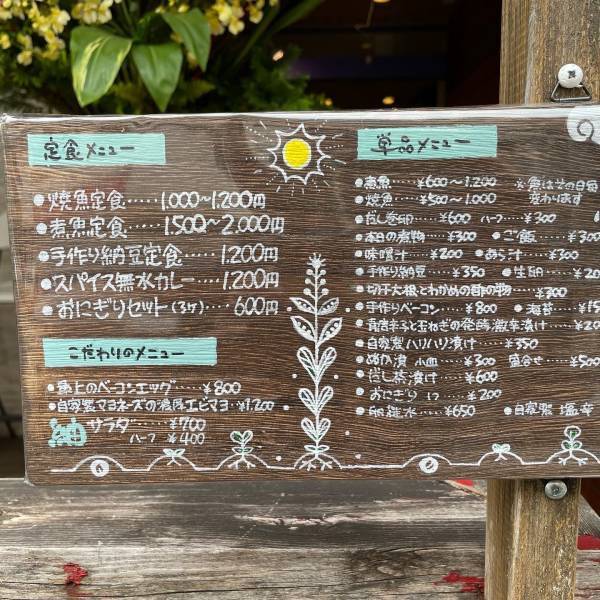 定食メニュー
●焼魚定食‥‥1,000〜1,200円
●煮魚定食‥‥1,500〜2,000円
●手作り納豆定食‥‥1,200円
●スパイス無水カレー‥‥1,200円
●おにぎりセット(3ヶ)‥‥600円
こだわりのメニュー
●極上のベーコンエッグ‥‥¥800
●自家製マヨネーズの濃厚エビマヨ ¥1,200
サラダ‥‥¥700
ハーフ ¥400
単品メニュー
●煮魚‥‥¥600〜1,200 ※魚はその日毎
●焼魚‥‥¥500〜1,000 変わります
●だし巻卵‥‥¥600 ハーフ‥‥¥300
●本日の煮物‥‥¥300 ●ご飯‥‥¥300
●味噌汁‥‥¥200 ●あら汁‥‥¥300
●手作り納豆‥‥¥350 ●生卵‥‥¥20
●切干大根とわかめの酢の物‥‥¥300
●手作りベーコン‥‥¥800 ●海苔‥‥¥15
●青唐辛子と玉ねぎの発酵激辛漬け‥‥¥20
●自家製ハリハリ漬け‥‥¥350
●ぬか漬 小皿‥‥¥300 盛合せ‥‥¥500
●だし茶漬け‥‥¥600
●おにぎり 1ケ‥‥¥200
●卵雑水‥‥¥650 ●自家製 塩辛‥